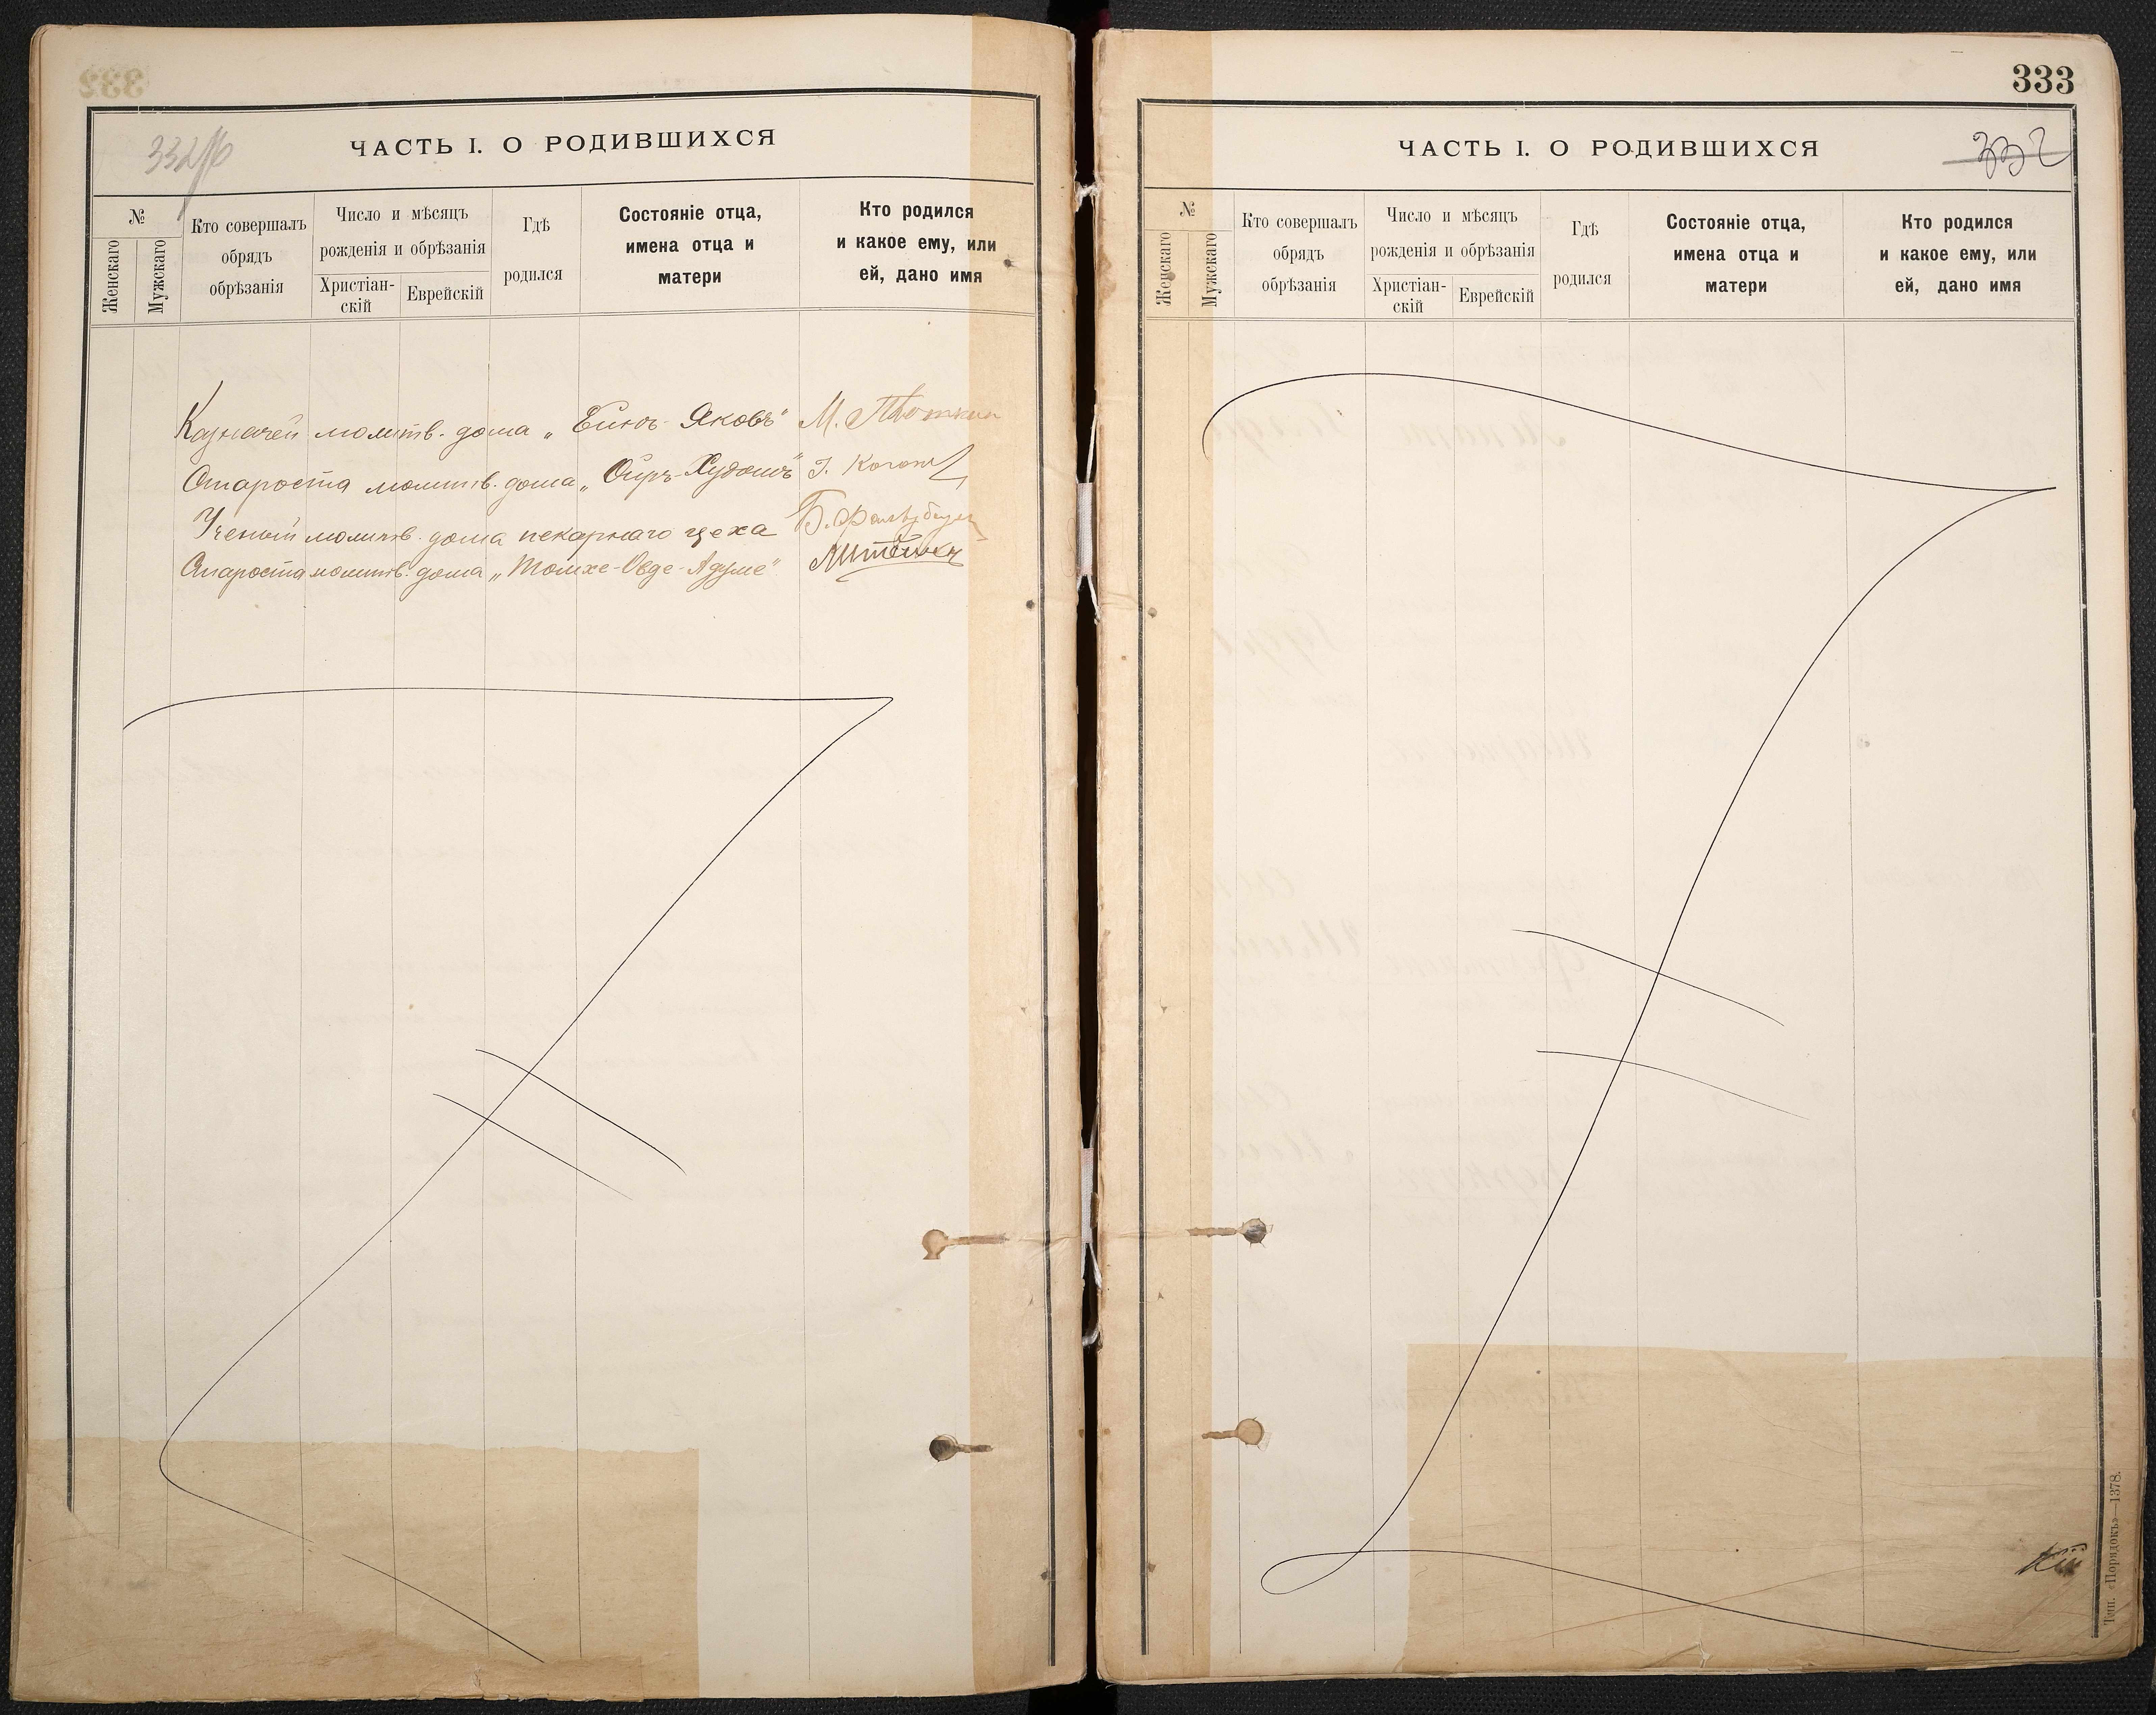 ЧАСТЬ I. О РОДИВШИХСЯ
№
Женскаго
Мужскаго
Кто совершалъ
обрядъ
обрѣзанія
Число и мѣсяцъ
рожденія и обрѣзанія
Христіан-
скій
Еврейскій
Гдѣ
родился
Состояніе отца,
имена отца и
матери
Кто родился
и какое ему, или
ей, дано имя
Казначей молитв. дома „Ейнъ Яковъ" М. Плоткин
Староста молитв. дома „Оиръ-Худошъ" I. Коган
Ученый молитв. дома пекарнаго цеха Б.
Староста молитв. дома „Томхе-Овде-Адуме"
333
332
ЧАСТЬ I. О РОДИВШИХСЯ
№
Женскаго
Мужскаго
Кто совершалъ
обрядъ
обрѣзанія
Число и мѣсяцъ
рожденія и обрѣзанія
Христіан-
скій
Еврейскій
Гдѣ
родился
Состояніе отца,
имена отца и
матери
Кто родился
и какое ему, или
ей, дано имя
Тип. «Порядокъ»—1378.